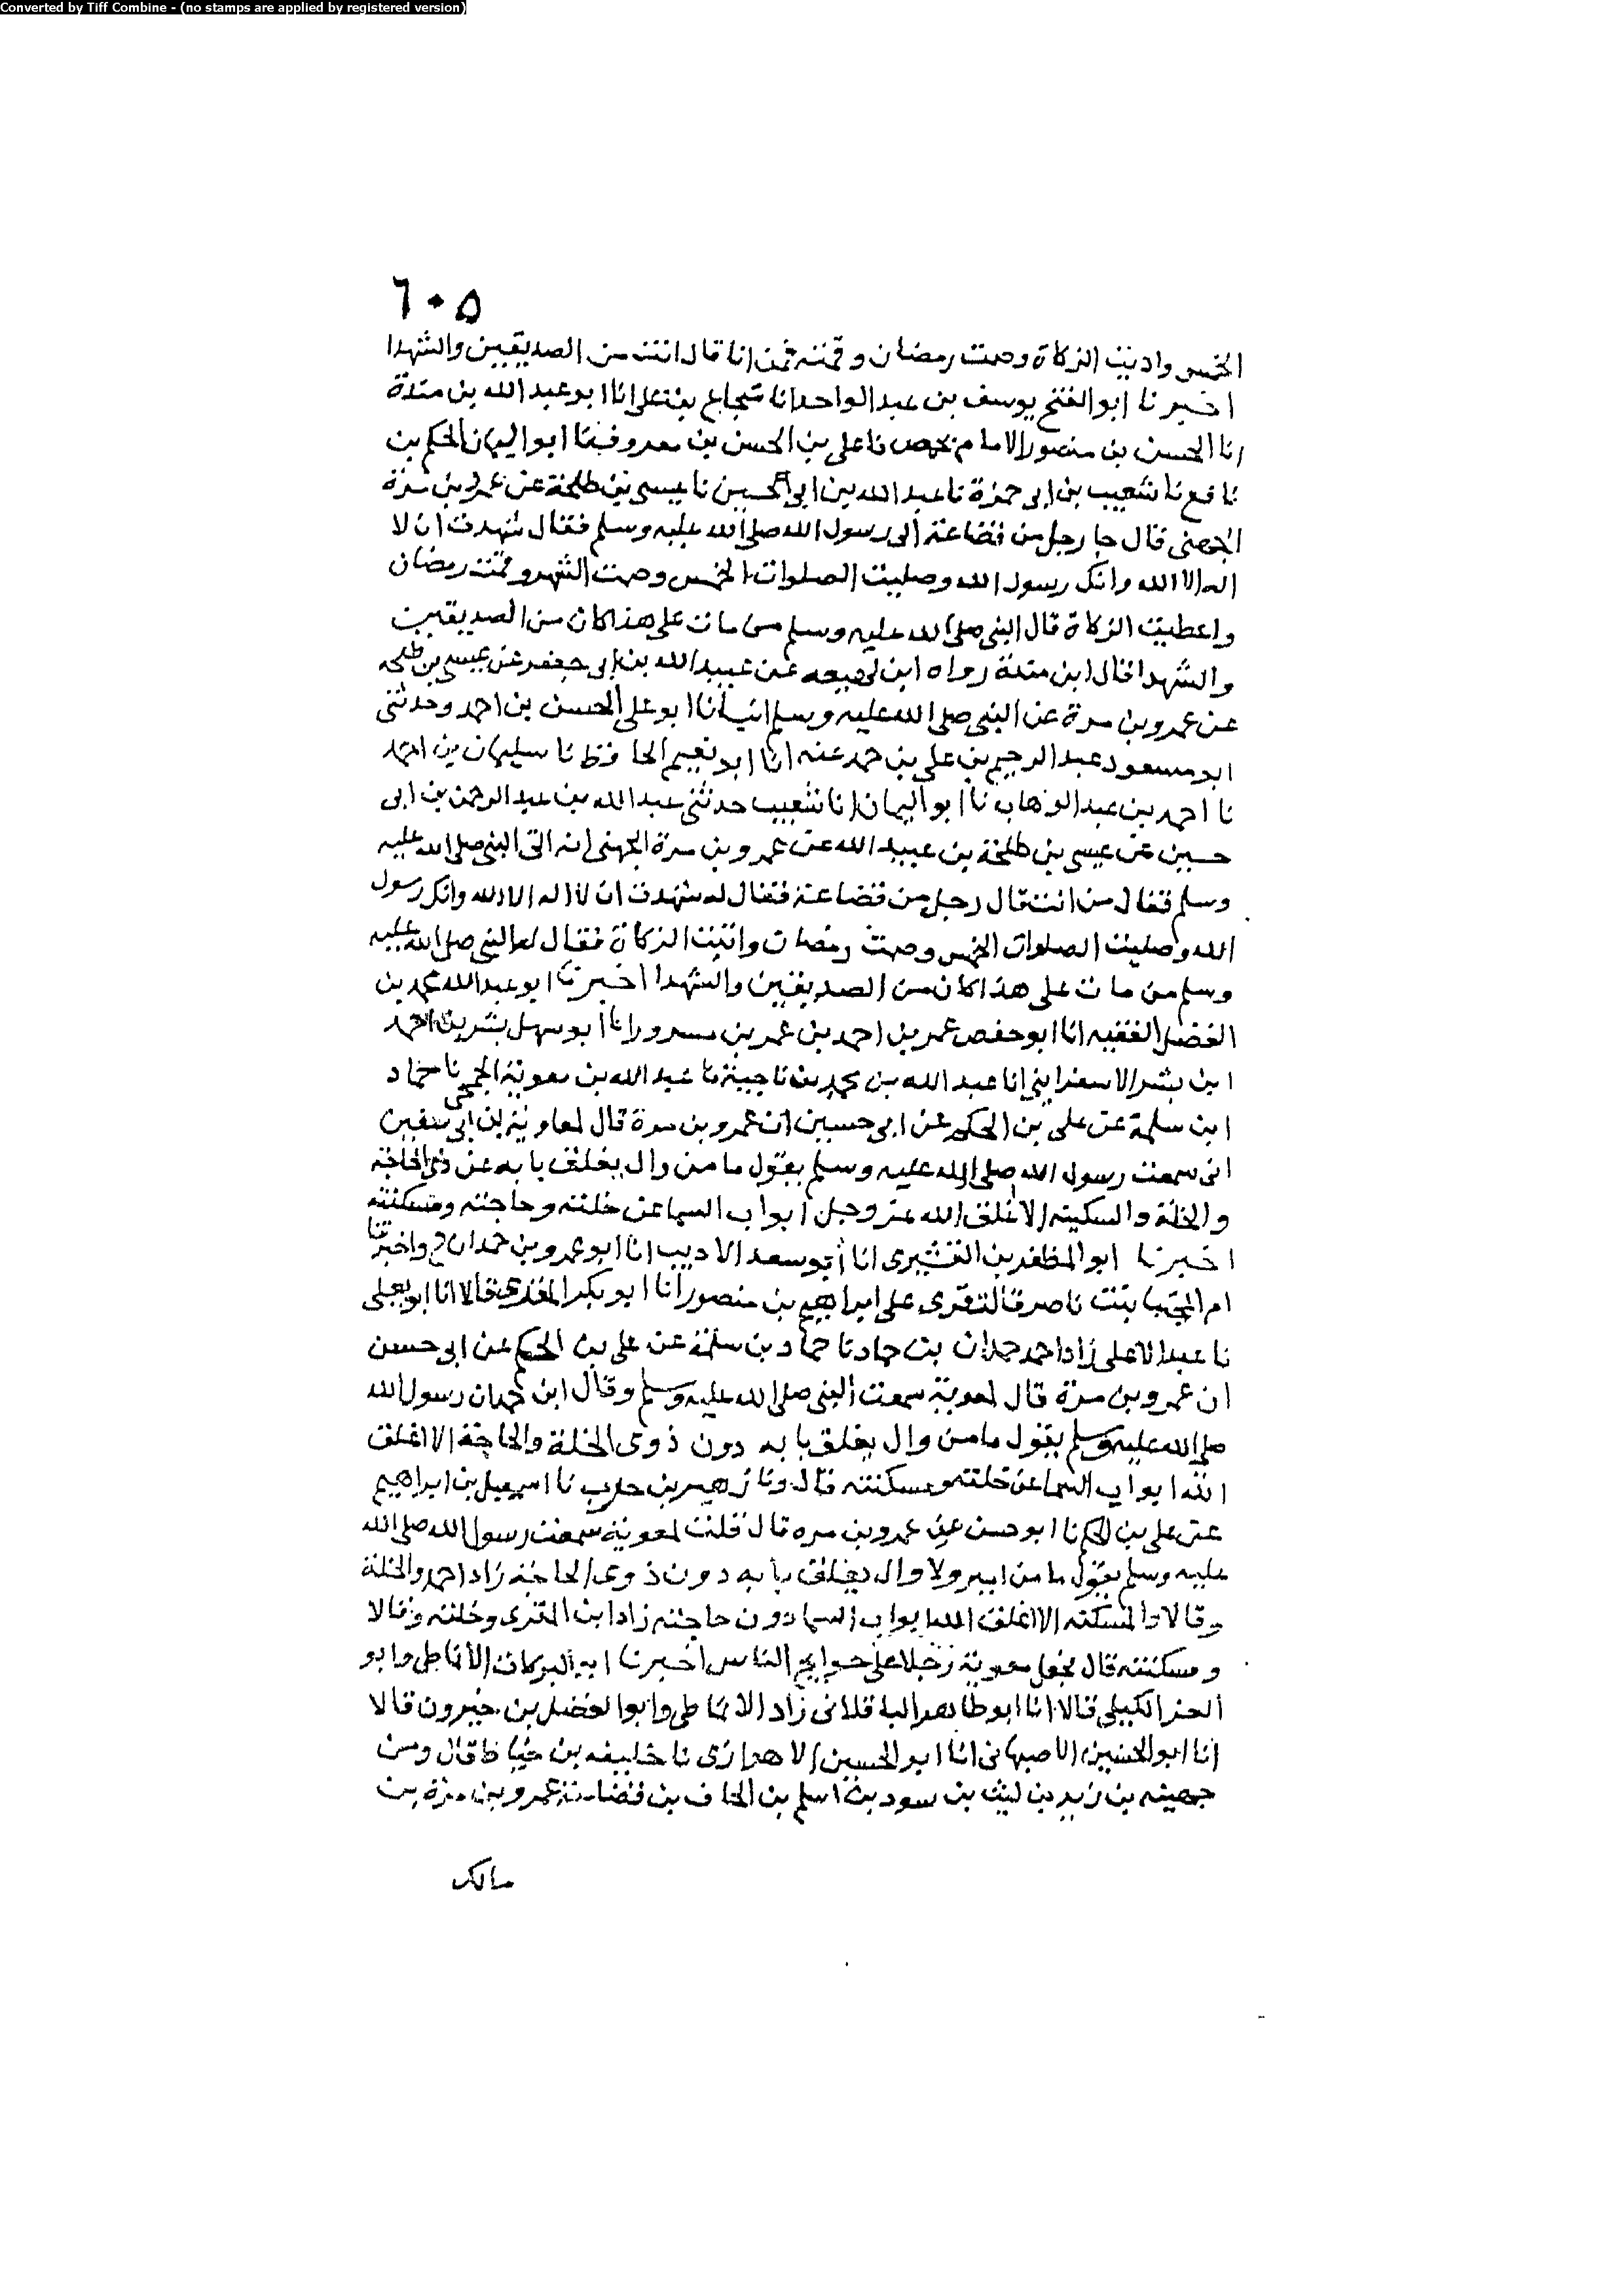 Converted by Tiff Combine - (no stamps are applied by registered version)
٦٠٥
الخمس واديت الزكاة وصمت رمضان وقمته فمن انا قال انت من الصديقين والشهدا
اخبرنا ابو الفتح يوسف بن عبد الواحد انا شجاع بن على انا ابو عبد الله بن مندة
انا الحسن بن منصور الامام بحمص نا على بن الحسن بن معروف نا ابو اليمان الحكم بن
نافع نا شعيب بن ابى حمزة نا عبد الله بن ابى الحسين نا عيسى بن طلحة عن عمرو بن مرة
الجهنى قال جا رجل من قضاعة الى رسول الله صلى الله عليه وسلم فقال شهدت ان لا
اله الا الله وانك رسول الله وصليت الصلوات الخمس وصمت الشهر وقمت رمضان
واعطيت الزكاة قال النبى صلى الله عليه وسلم من مات على هذا كان من الصديقين
والشهدا قال ابن مندة رواه ابن لهيعه عن عبيد الله بن ابى جعفر عن عيسى بن طلحه
عن عمرو بن مرة عن النبى صلى الله عليه وسلم انبانا ابو على الحسن بن احمد وحدثنى
ابو مسعود عبد الرحيم بن على بن حمد عنه انا ابو نعيم الحافظ نا سليمان بن احمد
نا احمد بن عبد الوهاب نا ابو اليمان انا شعيب حدثنى عبد الله بن عبد الرحمن بن ابى
حسين عن عيسى بن طلحة بن عبيد الله عن عمرو بن مرة الجهنى انه اتى النبى صلى الله عليه
وسلم فقال من انت قال رجل من قضاعة فقال له شهدت ان لا اله الا الله وانك رسول
الله وصليت الصلوات الخمس وصمت رمضان واتيت الزكاة فقال له النبى صلى الله عليه
وسلم من مات على هذا كان من الصديقين والشهدا اخبرنا ابو عبد الله محمد بن
الفضل الفقيه انا ابو حفص عمر بن احمد بن عمر بن مسرور انا ابو سهل بشر بن احمد
ابن بشر الاسفراينى انا عبد الله بن محمد بن ناجية نا عبد الله بن معوية الجمحى نا حماد
ابن سلمة عن على بن الحكم عن ابى حسين ان عمرو بن مرة قال لمعاوية بن ابى سفين
انى سمعت رسول الله صلى الله عليه وسلم يقول ما من وال يغلق بابه عن ذى الحاجة
والخلة والمسكينه الا اغلق الله عز وجل ابواب السما عن خلته وحاجته ومسكنته
اخبرنا ابو المظفر بن القشيرى انا ابو سعد الاديب انا ابو عمرو بن حمدان ح واخبرتنا
ام المجتبا بنت ناصر قالت قرى على ابراهيم بن منصور انا ابو بكر المقرى قالا انا ابو يعلى
نا عبد الاعلى زاد احمد حمدان بن حماد نا حماد بن سلمة عن على بن الحكم عن ابى حسن
ان عمرو بن مرة قال لمعوية سمعت النبى صلى الله عليه وسلم وقال ابن حمدان رسول الله
صلى الله عليه وسلم يقول ما من وال يغلق بابه دون ذوى الخلة والحاجة الا اغلق
الله ابواب السما عن خلته ومسكنته قال ونا زهير بن حرب نا اسمعيل بن ابراهيم
عن على بن الحكم نا ابو حسن عن عمرو بن مره قال قلت لمعوية سمعت رسول الله صلى الله
عليه وسلم يقول ما من امير ولا وال يغلق بابه دون ذوى الحاجة زاد احمد والخلة
وقالا والمسكنه الا اغلق الله ابواب السما دون حاجته زاد ابن المقرى وخلته وقالا
ومسكنته قال فجعل معوية رجلا على حوايج الناس اخبرنا ابو البركات الانماطى وابو
العز الكيلى قالا انا ابو طاهر الباقلانى زاد الانماطى وابو الفضل بن خيرون قالا
انا ابو الحسين الاصبهانى انا ابو الحسين الاهوازى نا خليفه بن خياط قال ومن
جهينه بن زيد بن ليث بن سود بن اسلم بن الحاف بن قضاعة عمرو بن مرة بن
مالك